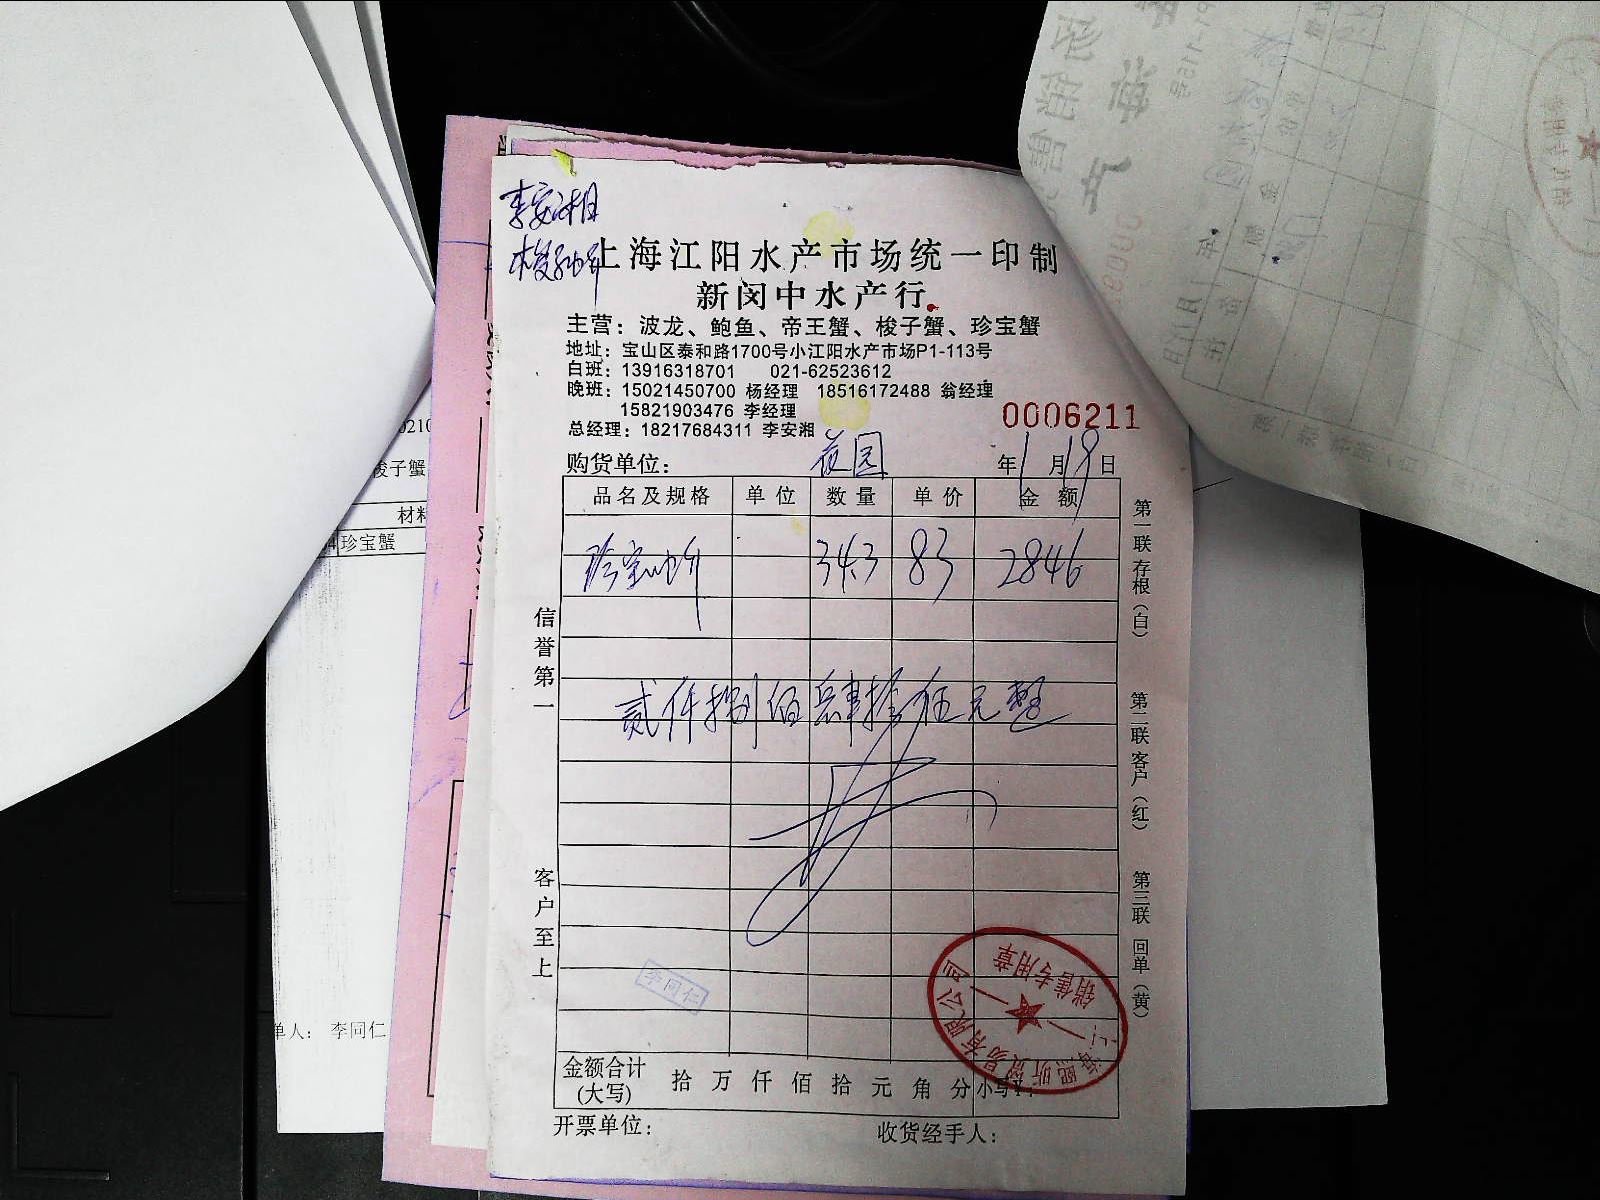 李安湘
梭子蟹
上海江阳水产市场统一印制
新闵中水产行
主营：波龙、鲍鱼、帝王蟹、梭子蟹、珍宝蟹
地址：宝山区泰和路1700号小江阳水产市场P1-113号
白班：13916318701 021-62523612
晚班：15021450700 杨经理 18516172488 翁经理
15821903476 李经理
总经理：18217684311 李安湘
0006211
购货单位： 花园 年 1 月 19 日
品名及规格 单位 数量 单价 金额
珍宝蟹 34.3 83 2846
贰仟捌佰肆拾伍元整
信誉第一
客户至上
第一联 存根（白）
第二联 客户（红）
第三联 回单（黄）
李同仁
销售专用章
金额合计
(大写)
拾 万 仟 佰 拾 元 角 分 小写¥:
开票单位：
收货经手人：
0210
梭子蟹
材料
珍宝蟹
单人： 李同仁